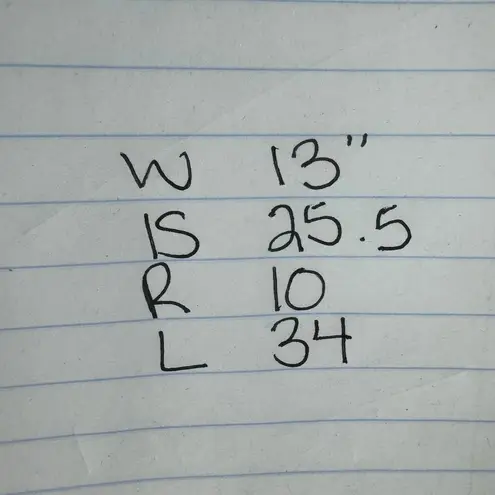 W 13"
IS 25.5
R 10
L 34